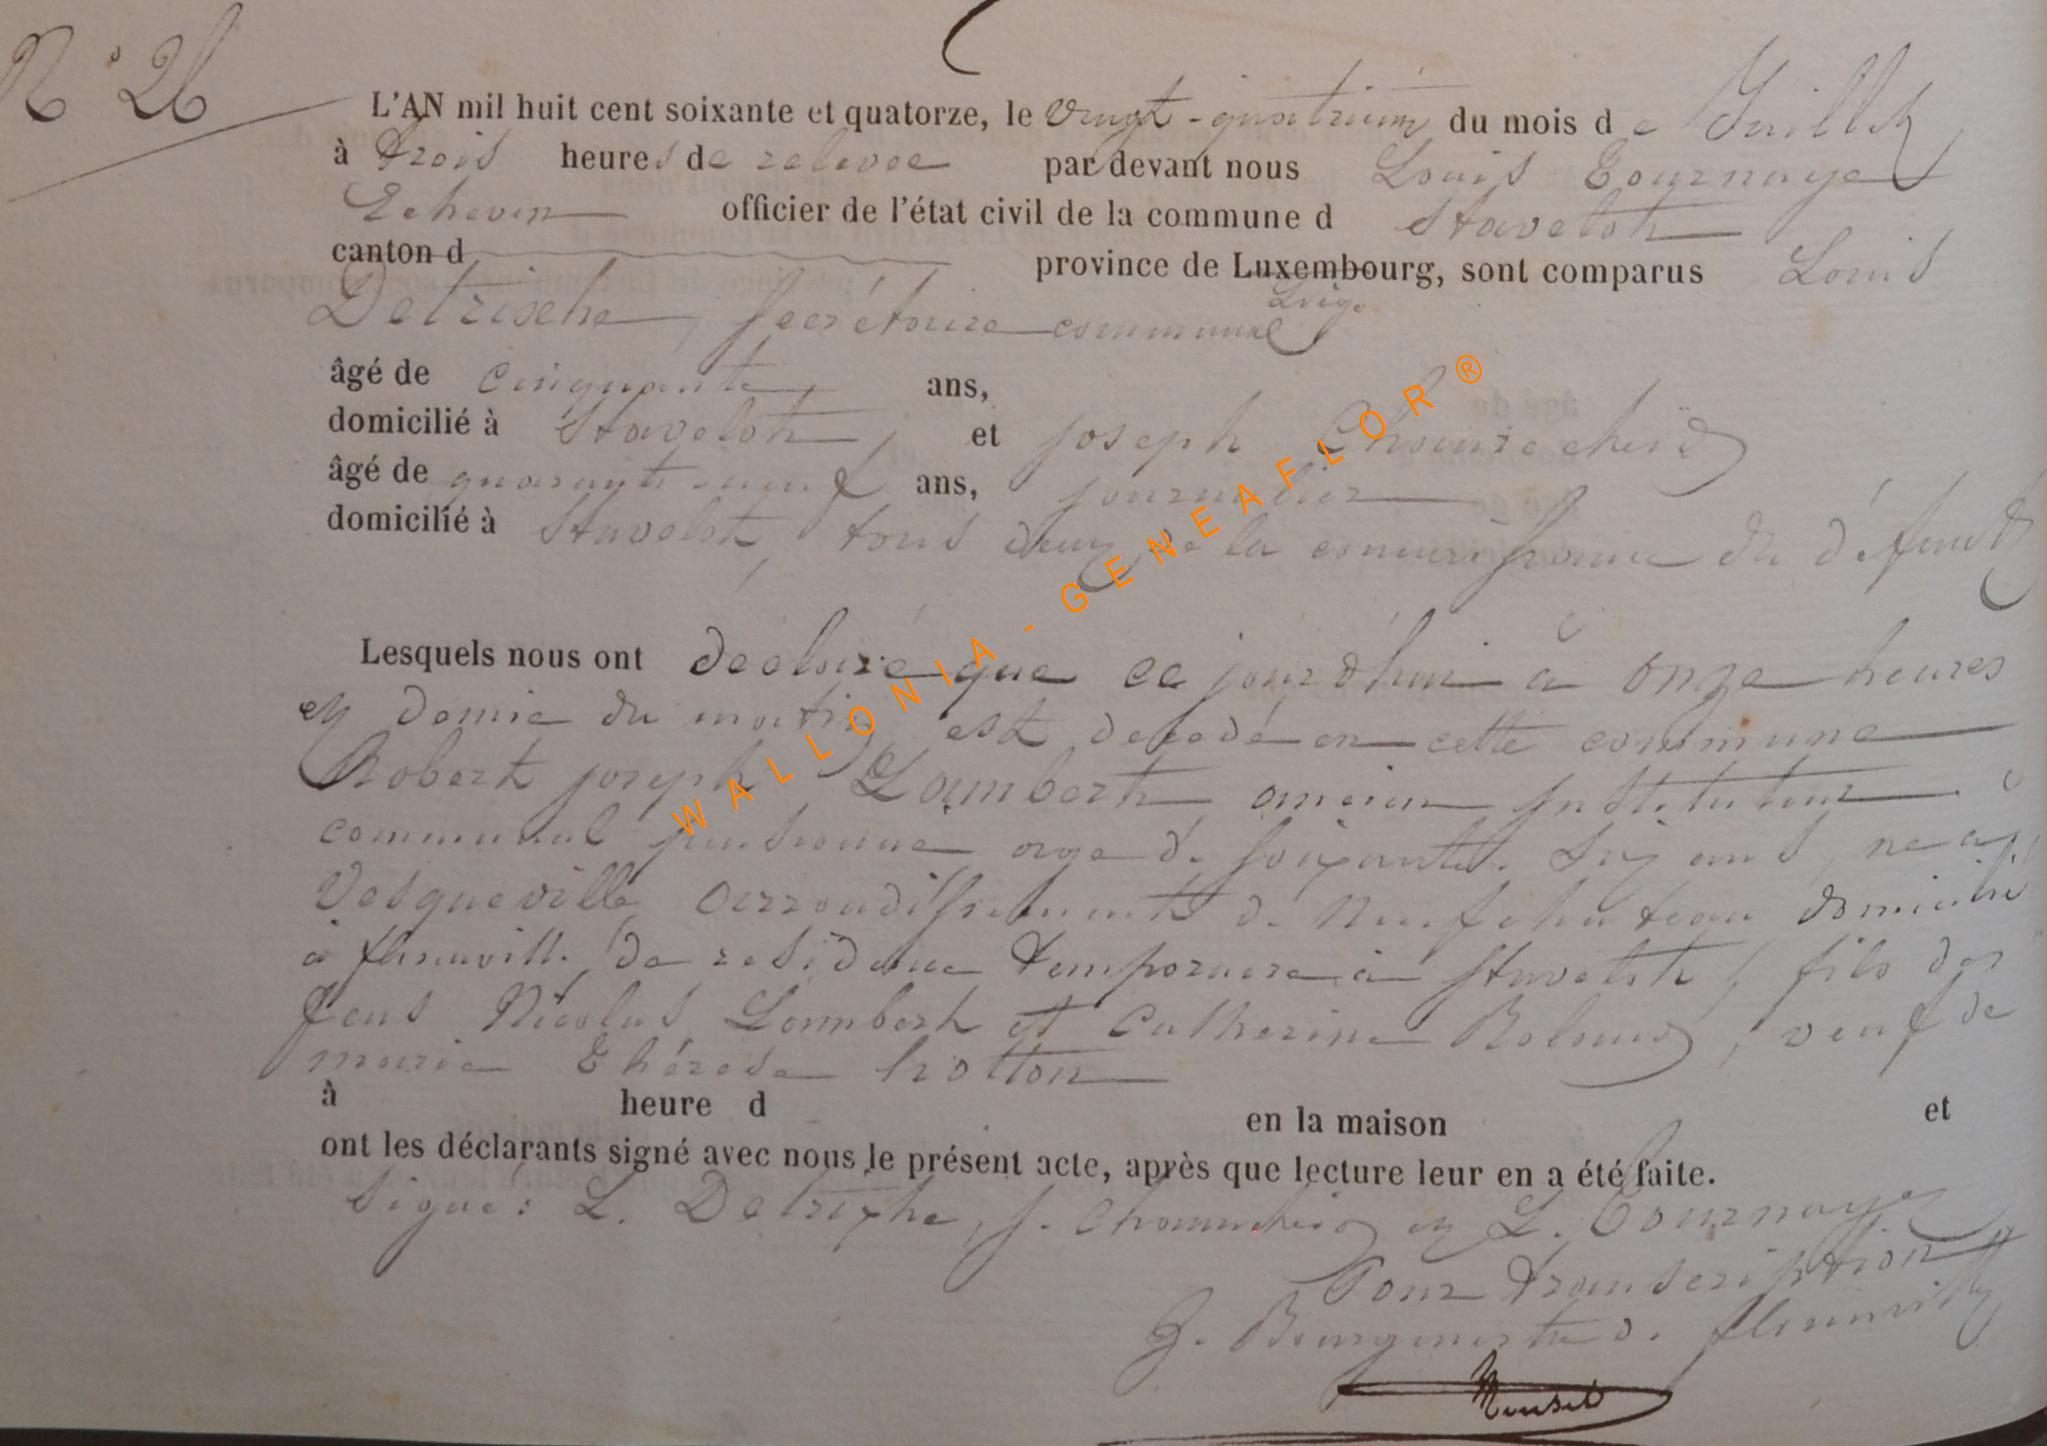 N° 26
L'AN mil huit cent soixante et quatorze, le vingt-quatrième du mois de Juillet
à trois heures de relevée par devant nous Louis Tournaye
Echevin officier de l'état civil de la commune d Stavelot
canton d province de Luxembourg, sont comparus Louis
Liège
Detrixhe, secrétaire communal
âgé de cinquante ans,
domicilié à Stavelot, et joseph
âgé de quarante-neuf ans, journalier
domicilié à Stavelot, tous deux de la connaissance du défunt
Lesquels nous ont déclaré que ce jourd'hui à onze heures
et demie du matin est décédé en cette commune
Robert joseph Lambert ancien instituteur
communal pensionné agé de soixante-six ans, né à
Vesqueville arrondissement de Neufchateau domicilié
à flenuville de residence temporaire à Stavelot, fils des
feus Nicolas Lambert et Catherine, veuf de
marie Thérèse hotton
à heure d en la maison et
ont les déclarants signé avec nous le présent acte, après que lecture leur en a été faite.
Signé: L. Detrixhe, j. et L. Tournaye
Pour transcription
Bourgmestre de
WALLONIA - GENEAFLOR ®